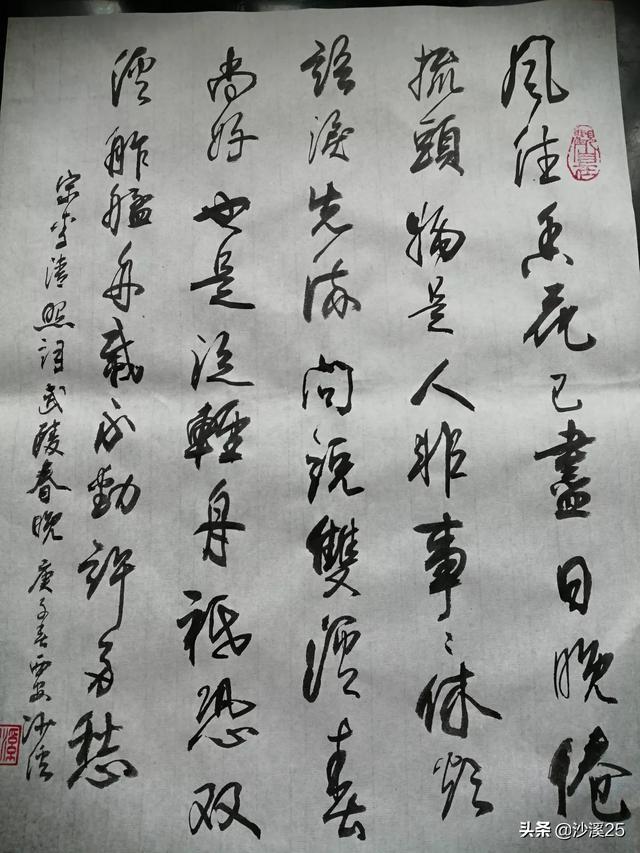 風住香花已盡日晚倦
梳頭物是人非事〻休欲
語淚先流聞說雙溪春
尚好也是泛輕舟祗恐双
溪舴艋舟載不動許多愁
宋李清照詞武陵春晚 庚子春西安沙溪
觀自在
头条 @沙溪25